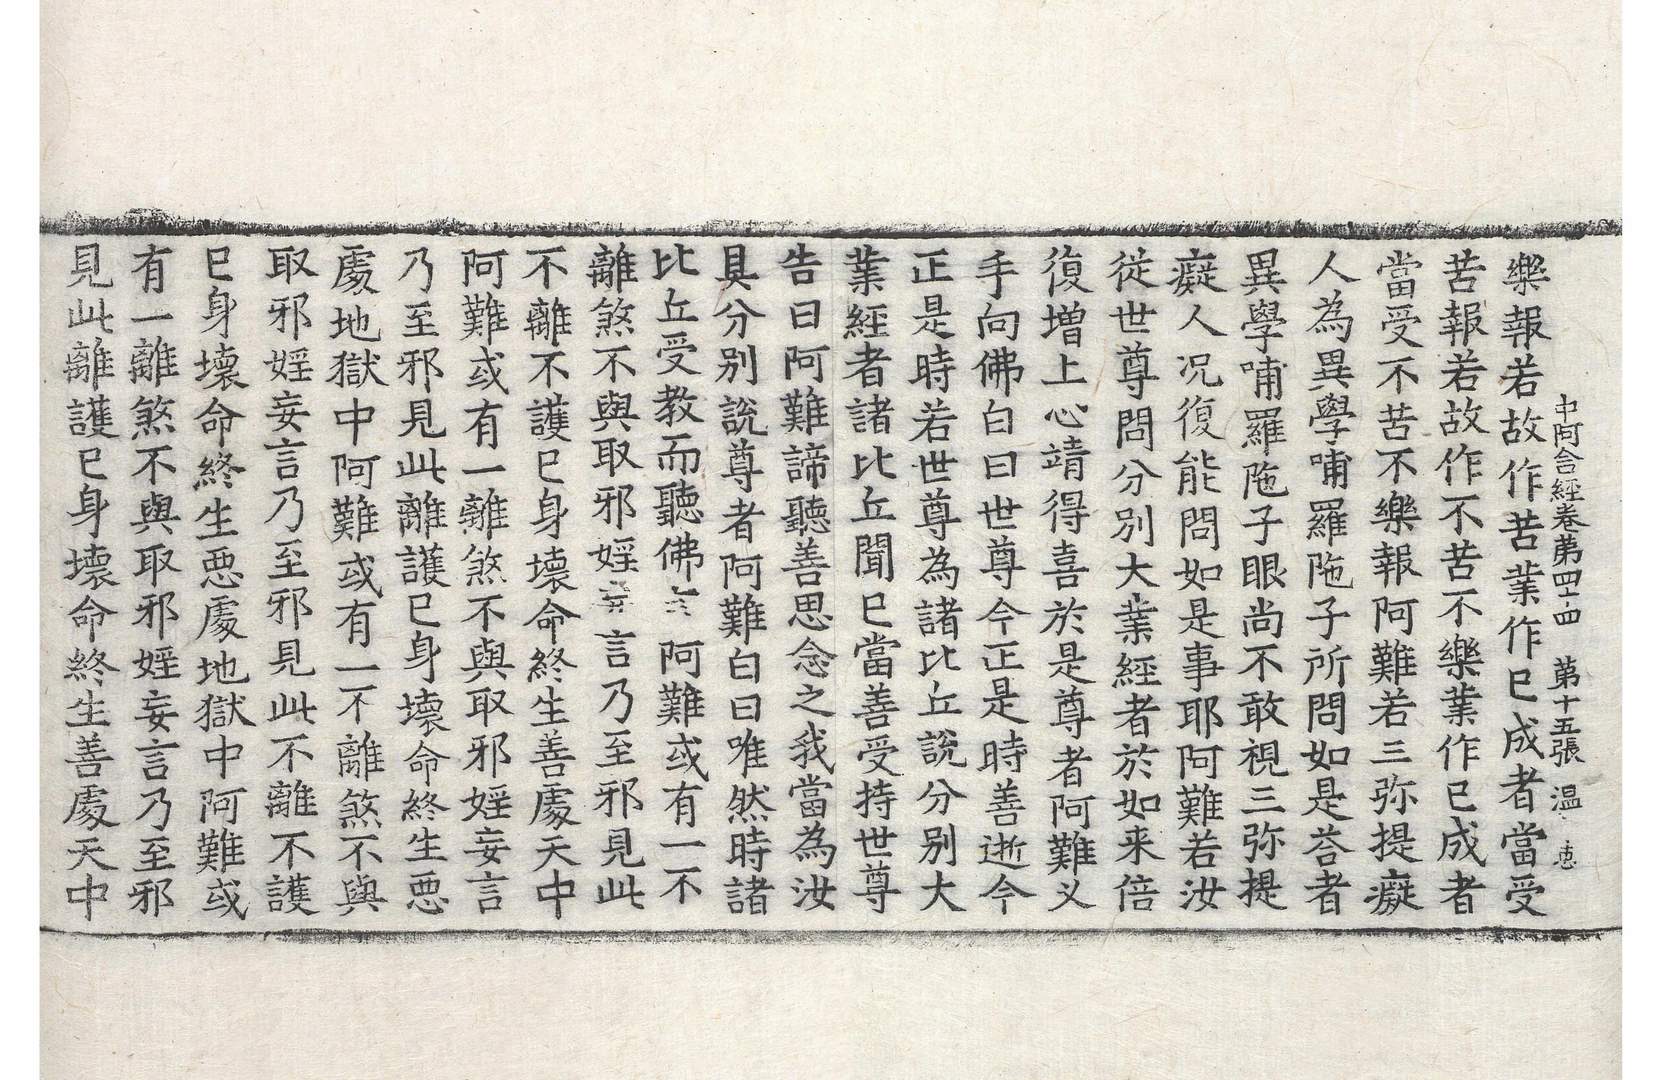 中阿含經卷第四十四　第十五張　温　恵
樂報若故作苦業作已成者當受
苦報若故作不苦不樂業作已成者
當受不苦不樂報阿難若三弥提癡
人為異學哺羅陁子所問如是荅者
異學哺羅陁子眼尚不敢視三弥提
癡人况復能問如是事耶阿難若汝
從世尊問分別大業經者於如来倍
復增上心靖得喜於是尊者阿難叉
手向佛白曰世尊今正是時善逝今
正是時若世尊為諸比丘說分別大
業經者諸比丘聞已當善受持世尊
告曰阿難諦聽善思念之我當為汝
具分別說尊者阿難白曰唯然時諸
比丘受教而聽佛言阿難或有一不
離煞不與取邪婬妄言乃至邪見此
不離不護已身壞命終生善處天中
阿難或有一離煞不與取邪婬妄言
乃至邪見此離護已身壞命終生悪
處地獄中阿難或有一不離煞不與
取邪婬妄言乃至邪見此不離不護
已身壞命終生悪處地獄中阿難或
有一離煞不與取邪婬妄言乃至邪
見此離護已身壞命終生善處天中